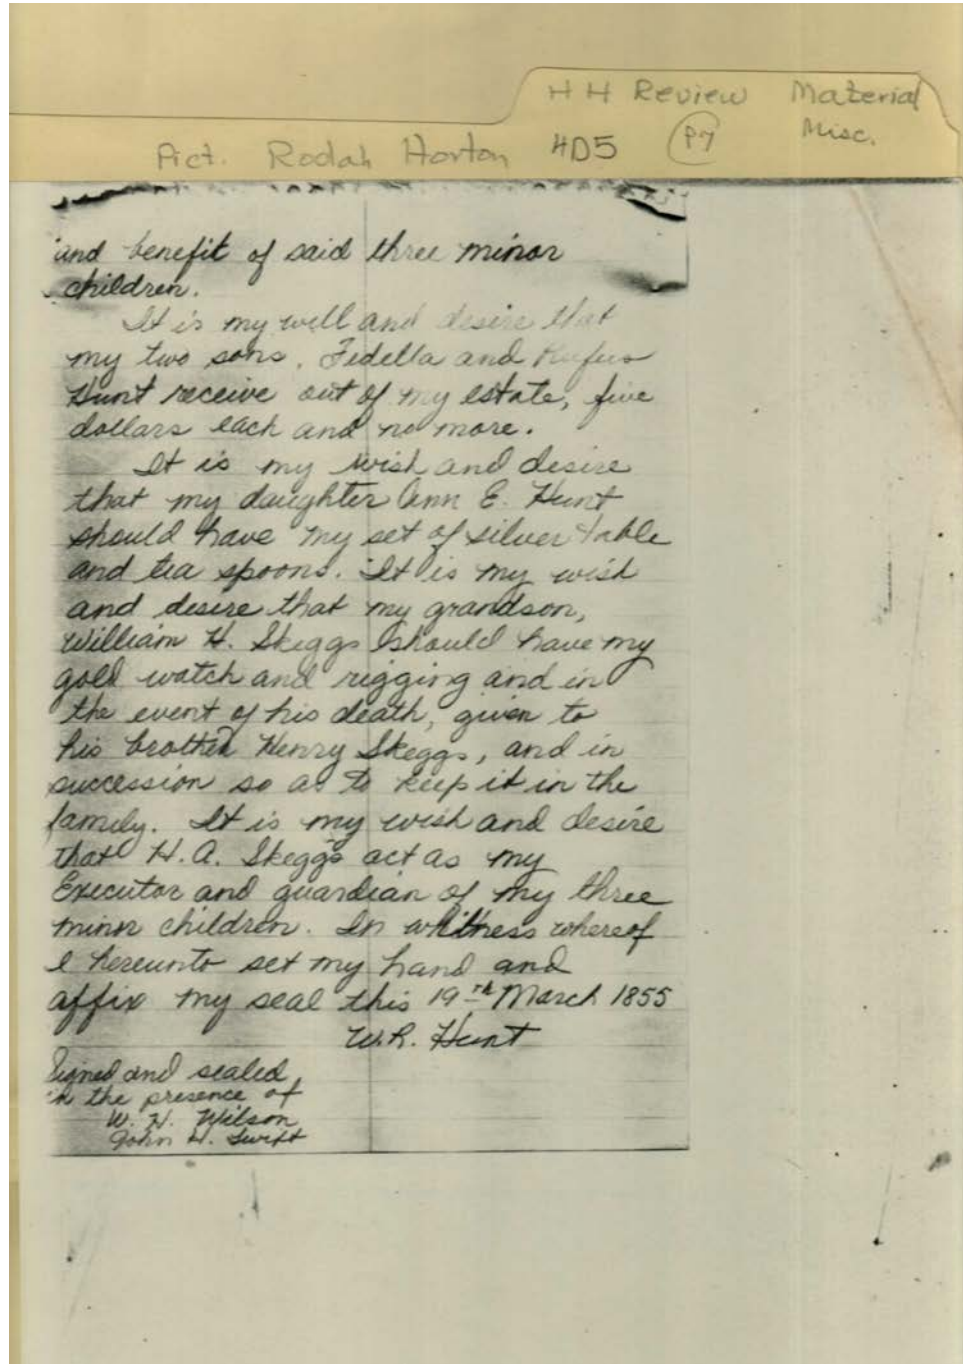 H H Review Material
Misc.
Pict. Rodah Horton 4D5 P7
and benefit of said three minor
children.
It is my will and desire that
my two sons, Fedella and Rufus
Hunt receive out of my estate, five
dollars each and no more.
It is my wish and desire
that my daughter Ann E. Hunt
should have my set of silver table
and tea spoons. It is my wish
and desire that my grandson,
William H. Skeggs should have my
gold watch and rigging and in
the event of his death, given to
his brother Henry Skeggs, and in
succession so as to keep it in the
family. It is my wish and desire
that H.A. Skeggs act as my
Executor and guardian of my three
minor children. In whitness whereof
I hereunto set my hand and
affix my seal this 19th March 1855
W.R. Hunt
Signed and sealed
in the presence of
W. H. Wilson
John H. Swift